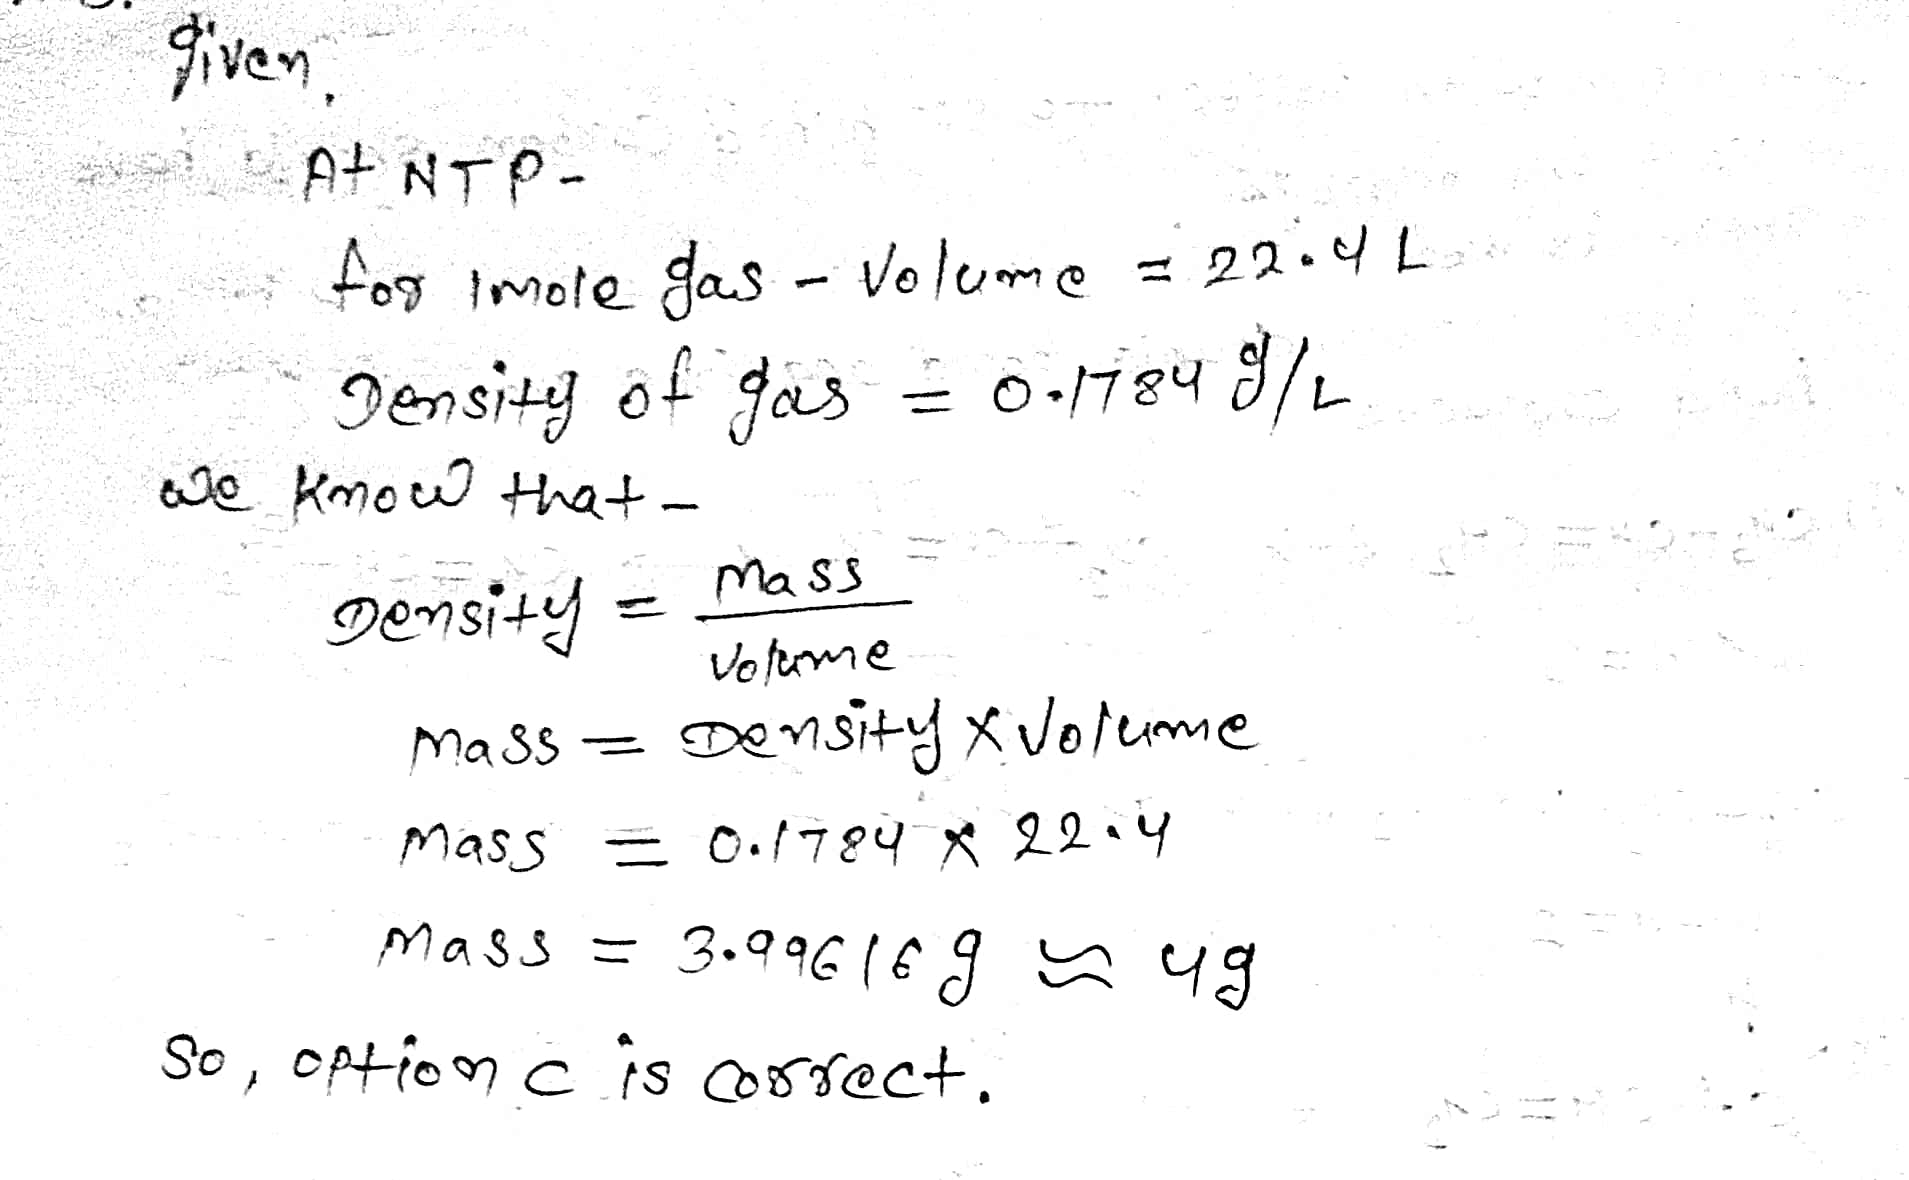 given,
At NTP-
for 1mole gas - Volume = 22.4 L
Density of gas = 0.1784 g/L
we know that -
Density = Mass / Volume
Mass = Density x Volume
Mass = 0.1784 x 22.4
Mass = 3.99616 g ≈ 4g
So, option c is correct.